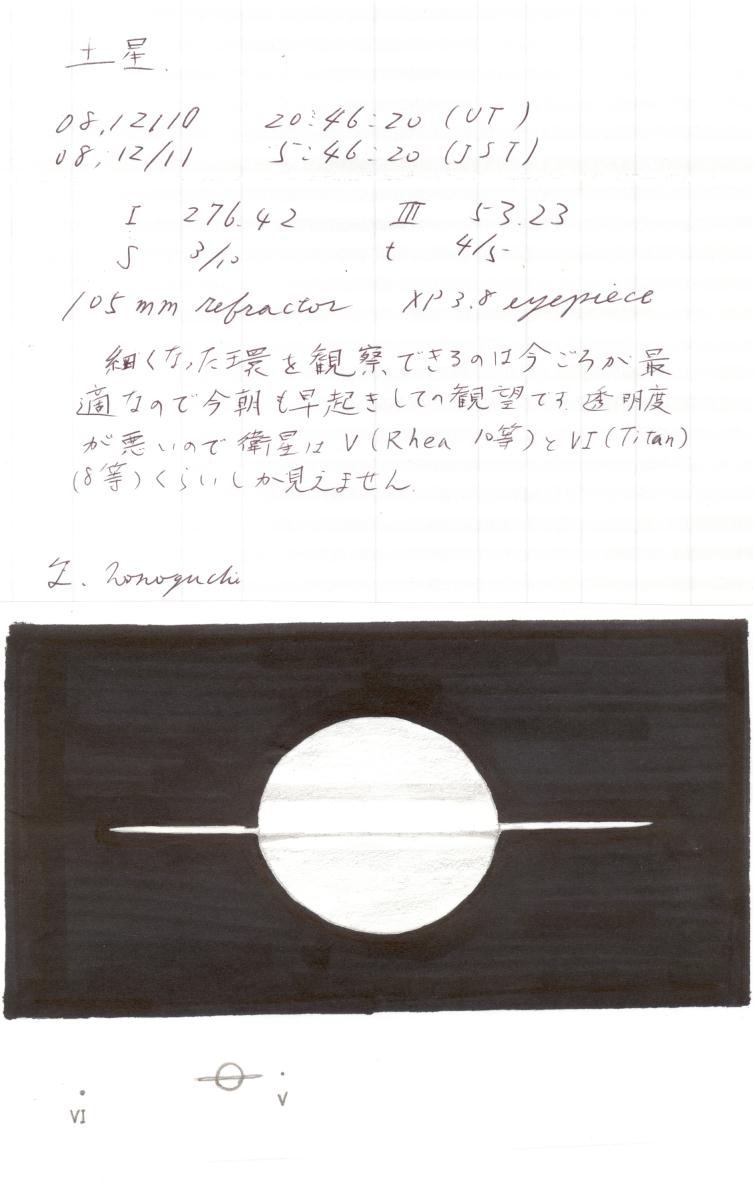 土星.
08,12/10 20:46:20 (UT)
08,12/11 5:46:20 (JST)
I 276.42 III 53.23
S 3/10 t 4/5
105mm refractor XP3.8 eyepiece
細くなった環を観察できるのは今ごろが最
適なので今朝も早起きしての観望です.透明度
が悪いので衛星はV(Rhea 10等)とVI(Titan)
(8等)くらいしか見えません.
VI
V